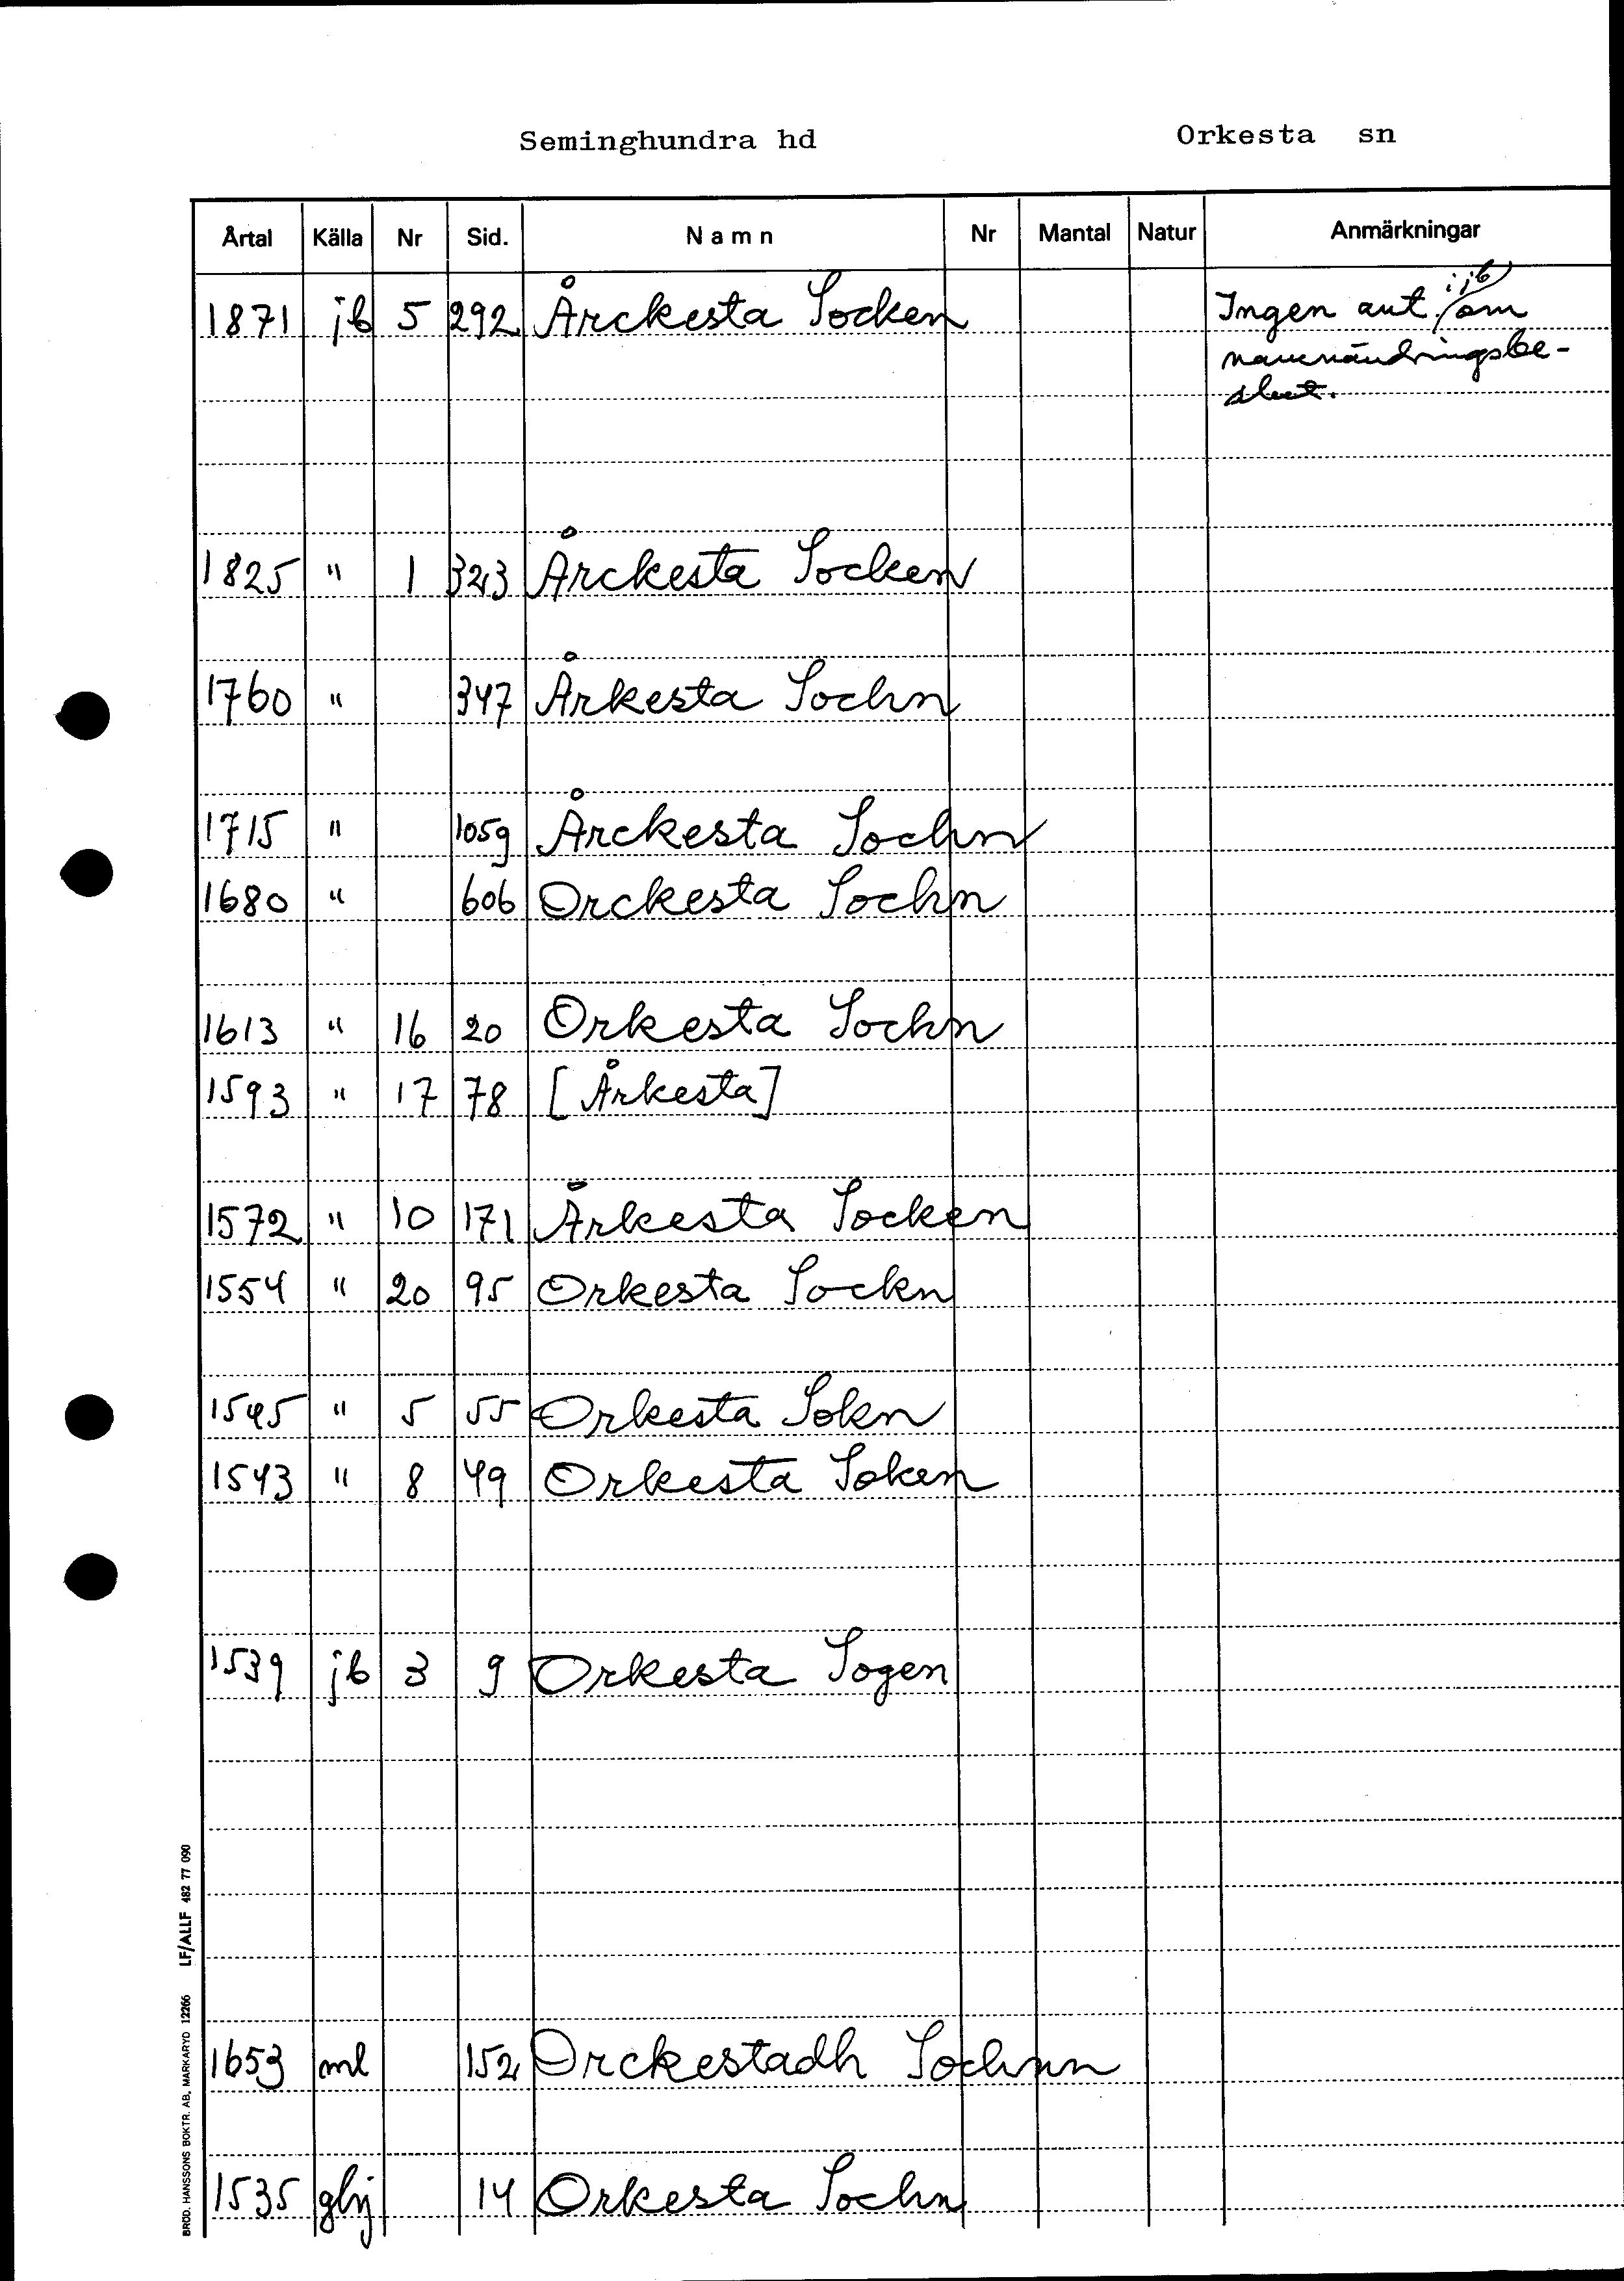 Seminghundra hd Orkesta sn
Årtal Källa Nr Sid. Namn Nr Mantal Natur Anmärkningar
1871 jb 5 292 Årckesta Socken Ingen ant. i jb om
namnändringsbe-
slut.
1825 " 1 323 Årckesta Socken
1760 " 347 Årkesta Sochn
1715 " 1059 Årckesta Sochn
1680 " 606 Orckesta Sochn
1613 " 16 20 Orkesta Sochn
1593 " 17 78 [Årkesta]
1572 " 10 171 Årkesta Socken
1554 " 20 95 Orkesta Sockn
1545 " 5 55 Orkesta Sokn
1543 " 8 49 Orkesta Soken
1539 jb 3 9 Orkesta Sogen
1653 ml 152 Orckestadh Sochnn
1535 ghj 14 Orkesta Sochn
BRÖD. HANSSONS BOKTR. AB, MARKARYD 12266 LF/ALLF 482 77 090